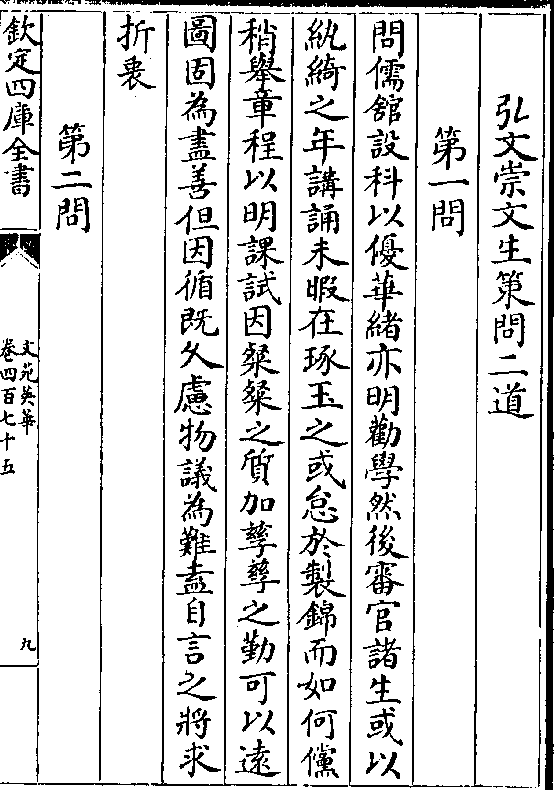 弘文崇文生策問二道
第一問
問儒舘設科以優華緒亦明勸學然後審官諸生或以
紈綺之年講誦未暇在琢玉之或怠於製錦而如何儻
稍舉章程以明課試因粲粲之質加孳孳之勤可以遠
圖固為盡善但因循既久慮物議為難盍自言之將求
折衷
第二問
欽定四庫全書
文苑英華
卷四百七十五
九